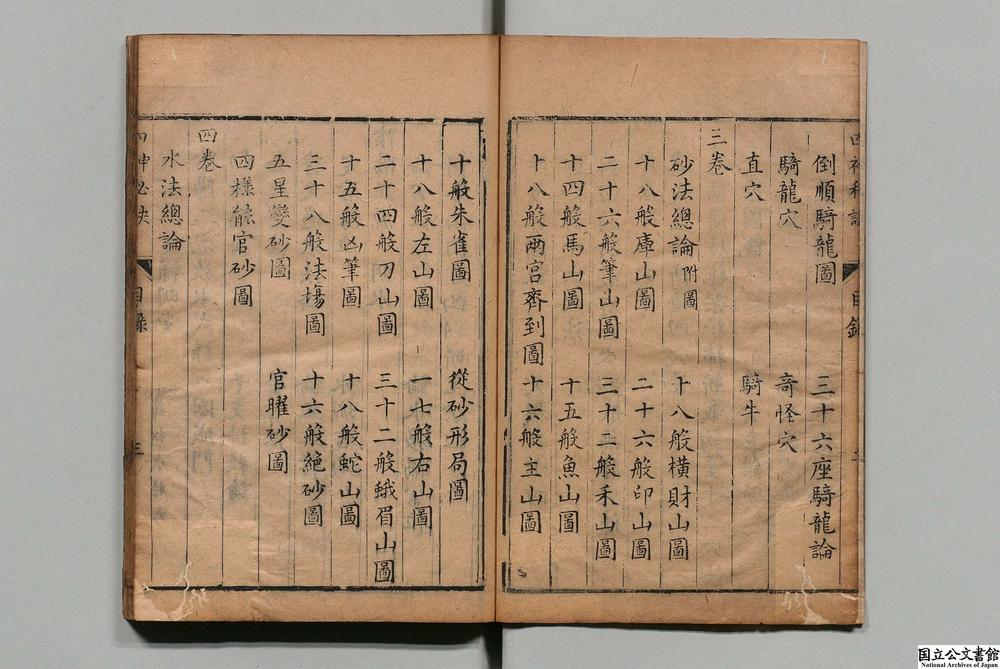 倒順騎龍圖　三十六座騎龍論
騎龍穴　竒怪穴
直穴　騎牛
三卷
砂法總論附圖　十八般橫財山圖
十八般庫山圖　二十六般印山圖
二十六般筆山圖　三十二般禾山圖
十四般馬山圖　十五般魚山圖
十八般兩宫齊到圖　十六般主山圖
十般朱雀圖　從砂形局圖
十八般左山圖　一七般右山圖
二十四般刀山圖　三十二般蛾眉山圖
十五般凶筆圖　十八般蛇山圖
三十八般法塲圖　十六般絕砂圖
五星變砂圖　官曜砂圖
四樣能官砂圖
四卷
水法總論
目錄
国立公文書館
National Archives of Japan